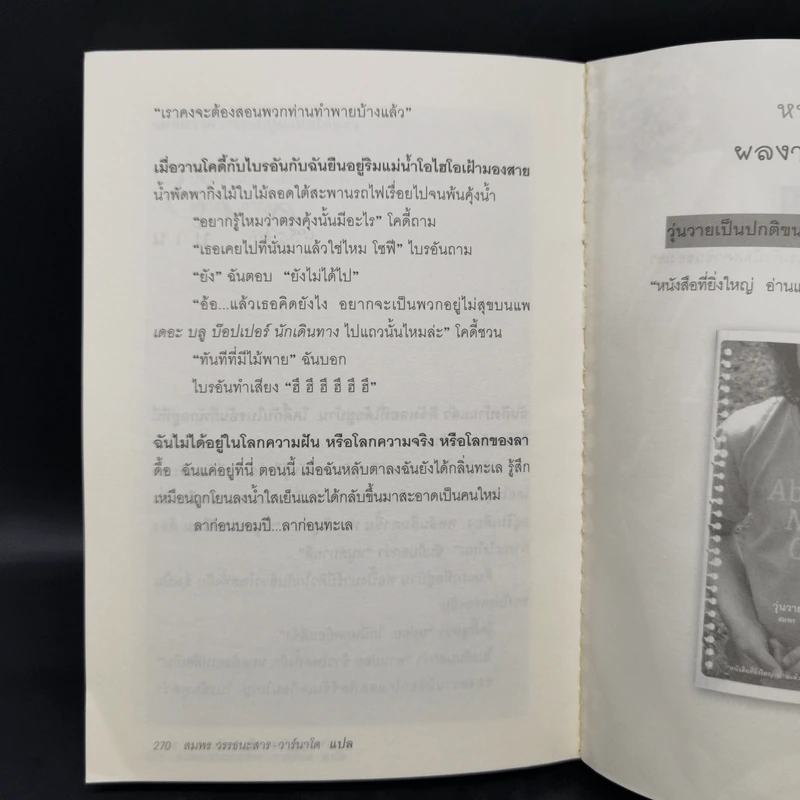 “เราคงจะต้องสอนพวกท่านทำพายบ้างแล้ว”
เมื่อวานโคดี้กับไบรอันกับฉันยืนอยู่ริมแม่น้ำโอไฮโอเฝ้ามองสาย
น้ำพัดพากิ่งไม้ใบไม้ลอดใต้สะพานรถไฟเรื่อยไปจนพ้นคุ้งน้ำ
“อยากรู้ไหมว่าตรงคุ้งนั้นมีอะไร” โคดี้ถาม
“เธอเคยไปที่นั่นมาแล้วใช่ไหม โซฟี” ไบรอันถาม
“ยัง” ฉันตอบ “ยังไม่ได้ไป”
“อ้อ...แล้วเธอคิดยังไง อยากจะเป็นพวกอยู่ไม่สุขบนแพ
เดอะ บลู บ๊อปเปอร์ นักเดินทาง ไปแถวนั้นไหมล่ะ” โคดี้ชวน
“ทันทีที่มีไม้พาย” ฉันบอก
ไบรอันทำเสียง “ฮึ ฮึ ฮึ ฮึ ฮึ ฮึ”
ฉันไม่ได้อยู่ในโลกความฝัน หรือโลกความจริง หรือโลกของลา
ดื้อ ฉันแค่อยู่ที่นี่ ตอนนี้ เมื่อฉันหลับตาลงฉันยังได้กลิ่นทะเล รู้สึก
เหมือนถูกโยนลงน้ำใสเย็นและได้กลับขึ้นมาสะอาดเป็นคนใหม่
ลาก่อนบอมปี...ลาก่อนทะเล
270 สมพร วรรธนะสาร-วาร์นาโด แปล
ผลงา
วุ่นวายเป็นปกติขน
“หนังสือที่ยิ่งใหญ่ อ่านแ
Ab
วุ่นวาย
สมพร